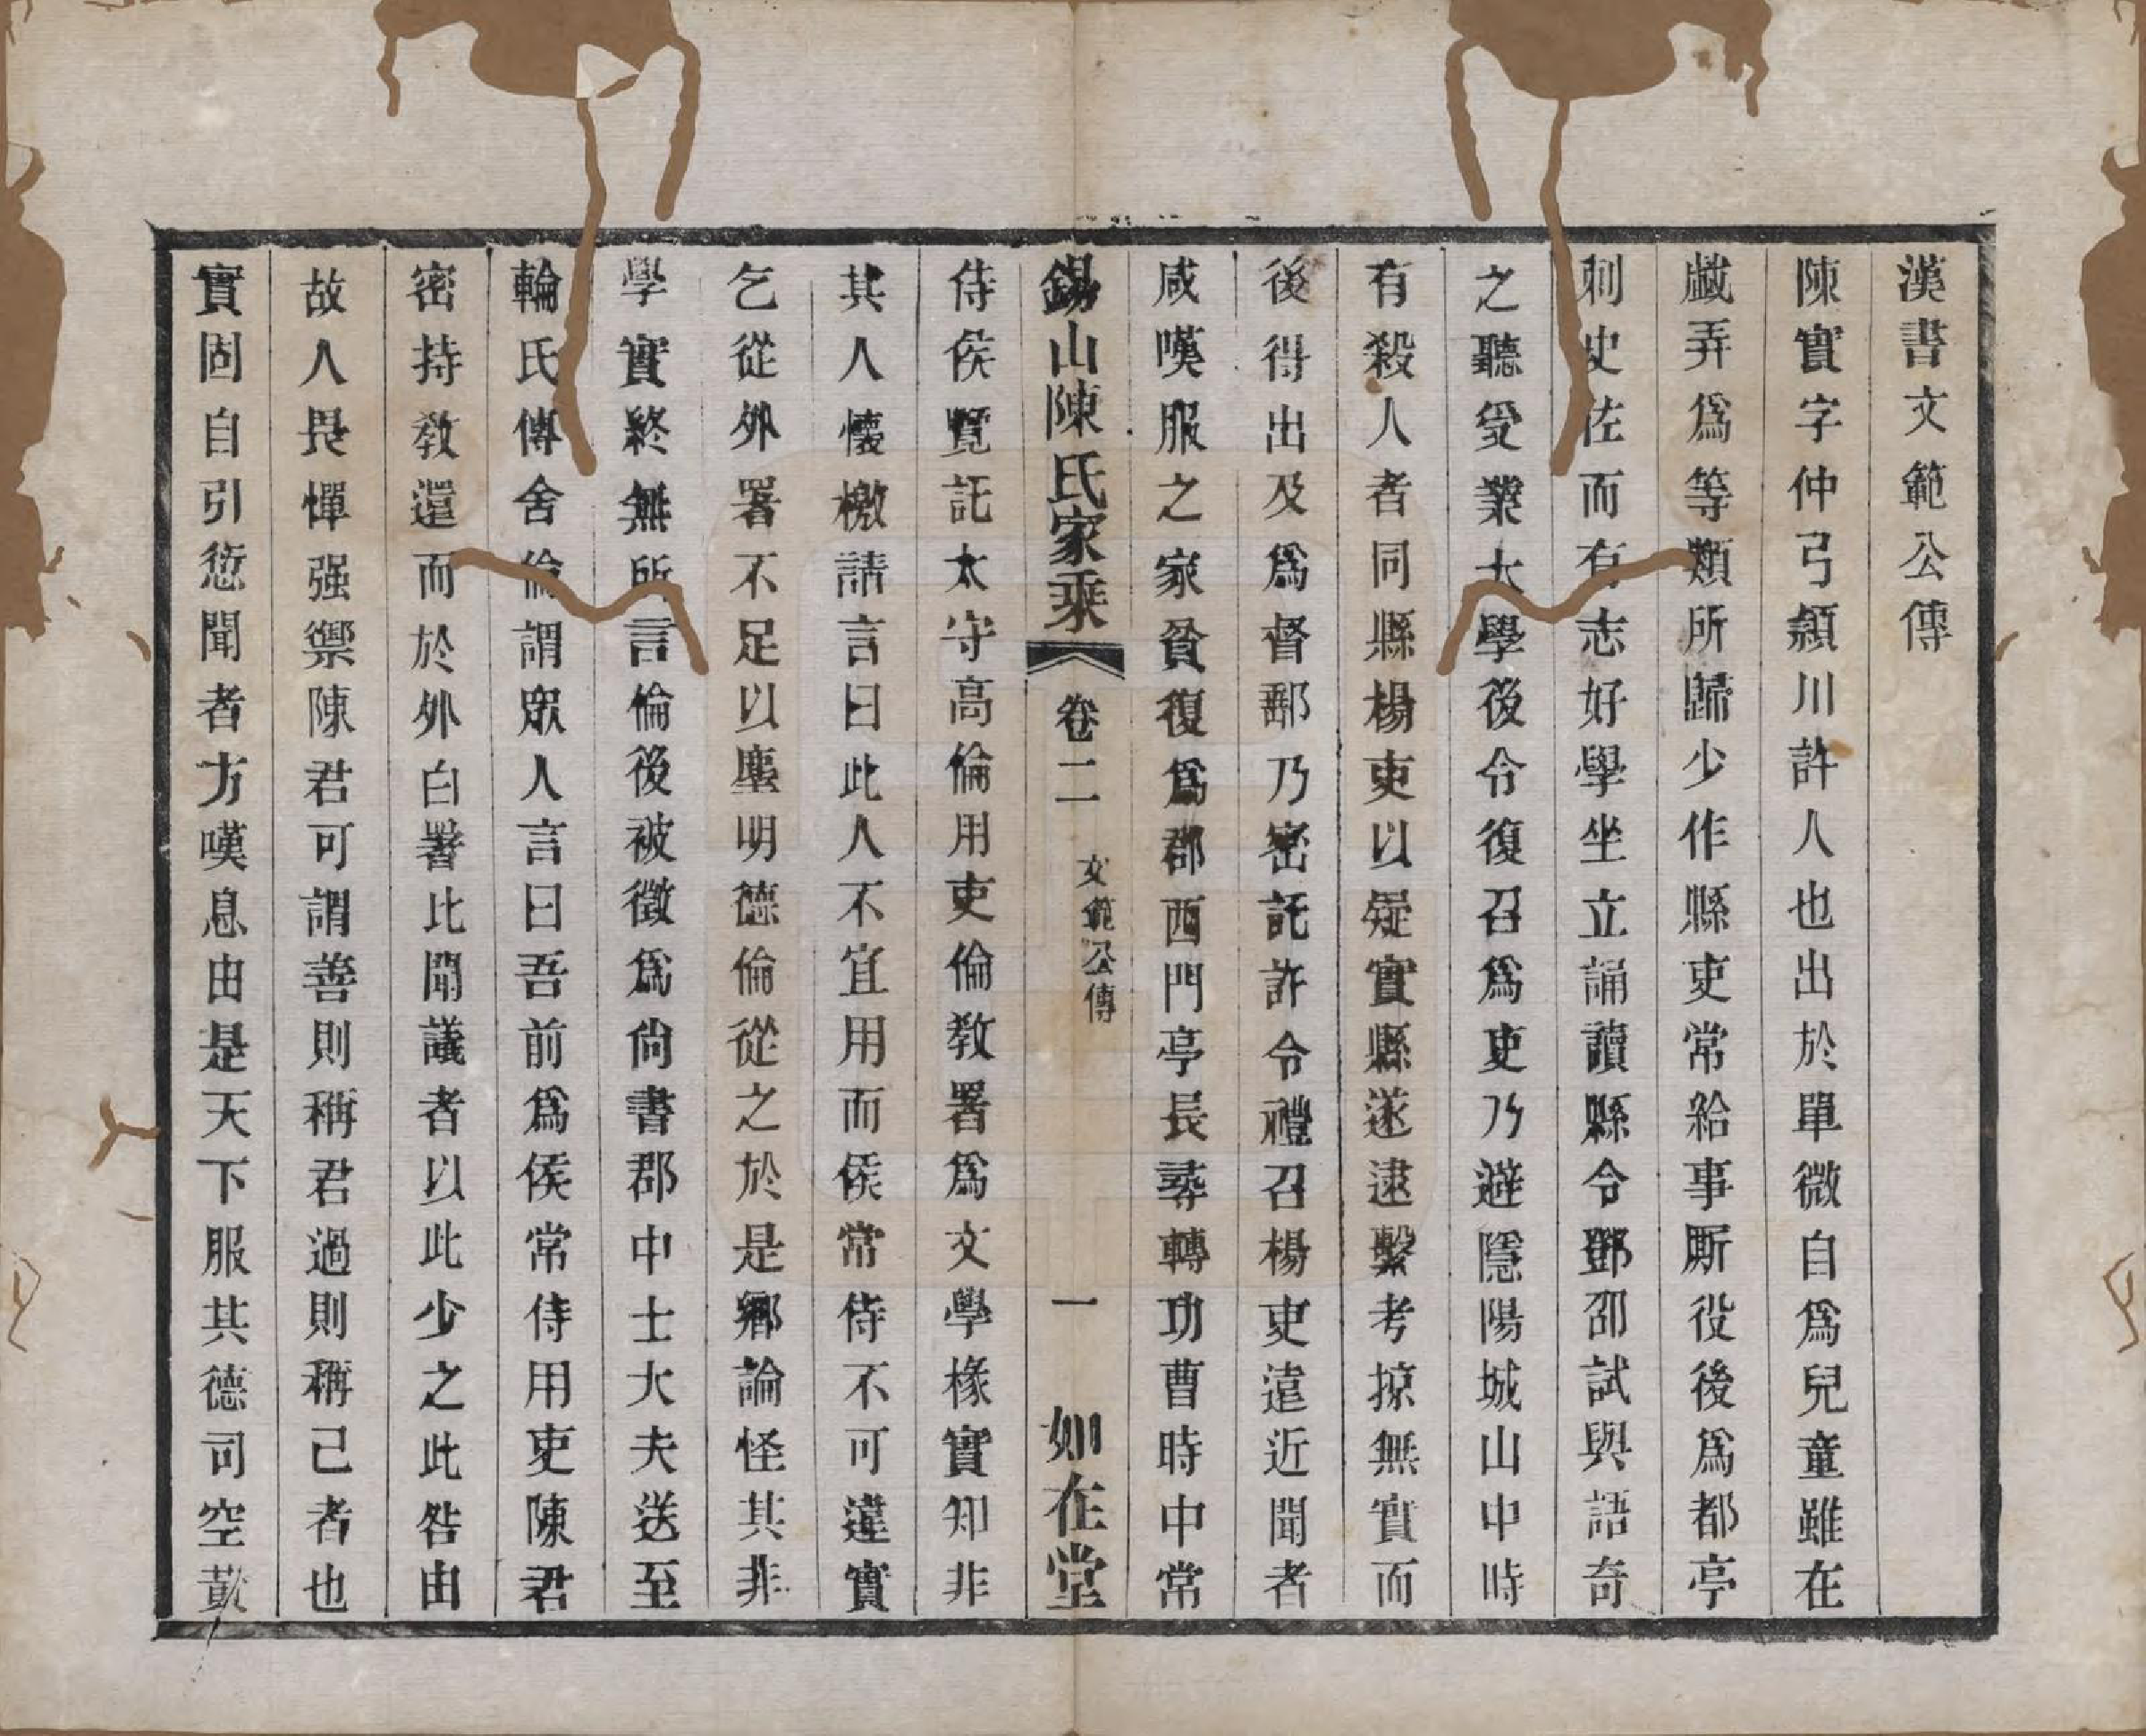 漢書文範公傳
陳實字仲弓潁川許人也出於單微自爲兒童雖在
戲弄爲等類所歸少作縣吏常給事厮役後爲都亭
刺史佐而有志好學坐立誦讀縣令鄧邵試與語奇
之聽受業太學後令復召爲吏乃避隱陽城山中時
有殺人者同縣楊吏以疑實縣遂逮繫考掠無實而
後得出及爲督郵乃密託許令禮召楊吏遠近聞者
咸嘆服之家貧復爲郡西門亭長尋轉功曹時中常
錫山陳氏家乘 卷二 文範公傳 一 如在堂
侍侯覽託太守高倫用吏倫教署爲文學椽實知非
其人懷檄請言曰此人不宜用而侯常侍不可違實
乞從外署不足以塵明德倫從之於是鄉論怪其非
學實終無所言倫後被徵爲尙書郡中士大夫送至
輪氏傳舍倫謂眾人言曰吾前爲侯常侍用吏陳君
密持教還而於外白署比聞議者以此少之此咎由
故人畏憚强禦陳君可謂善則稱君過則稱己者也
實固自引愆聞者方嘆息由是天下服其德司空黃